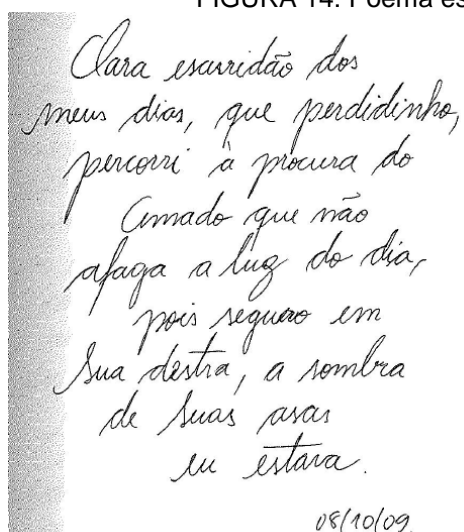 FIGURA 14: Poema es
Clara escuridão dos
meus dias, que perdidinho,
percorri à procura do
Amado que não
afaga a luz do dia,
pois seguro em
Sua destra, a sombra
de Suas asas
eu estava.
08/10/09